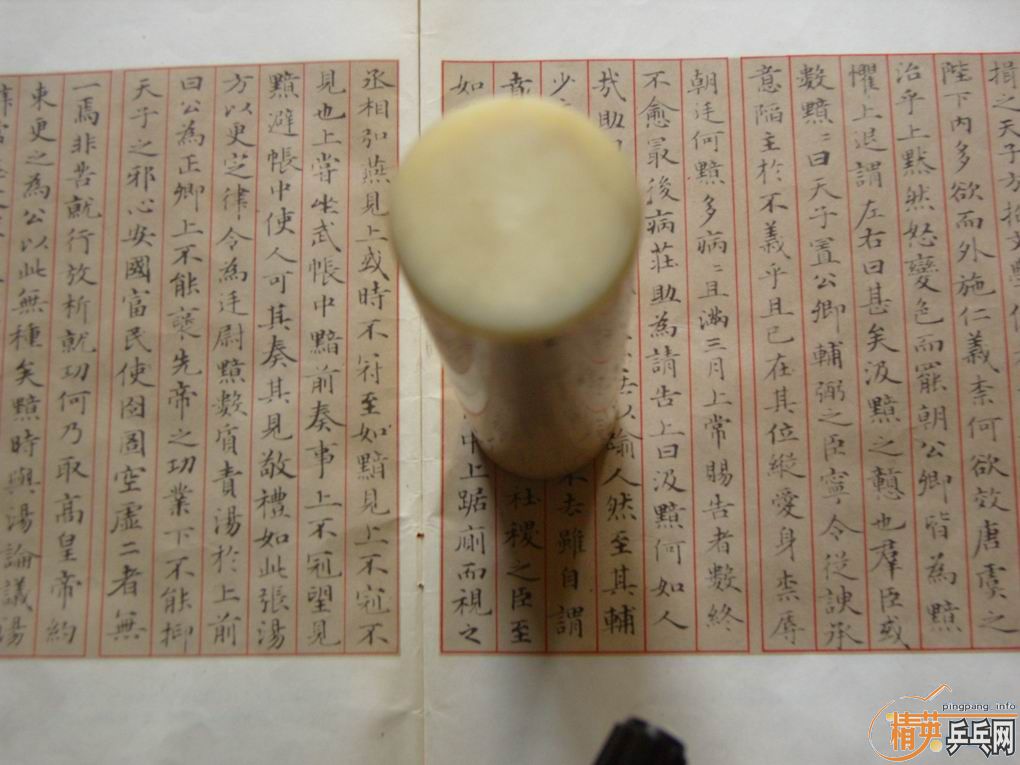 揖之天子方招文學
陛下內多欲而外施仁義柰何欲效唐虞之
治乎上默然怒變色而罷朝公卿皆為黯
懼上退謂左右曰甚矣汲黯之戇也羣臣或
數黯〻曰天子置公卿輔弼之臣寧令從諛承
意陷主於不義乎且已在其位縱愛身柰辱
朝廷何黯多病〻且滿三月上常賜告者數終
不愈最後病莊助為請告上曰汲黯何如人
哉助 以踰人然至其輔
少 去雖自謂
社稷之臣至
如 中上踞廁而視之
丞相弘燕見上或時不冠至如黯見上不冠不
見也上嘗坐武帳中黯前奏事上不冠望見
黯避帳中使人可其奏其見敬禮如此張湯
方以更定律令為廷尉黯數質責湯於上前
曰公為正卿上不能襃先帝之功業下不能抑
天子之邪心安國富民使囹圄空虛二者無
一焉非苦就行放析就功何乃取高皇帝約
束更之為公以此無種矣黯時與湯論議湯
pingpang.info
精英乒乓网